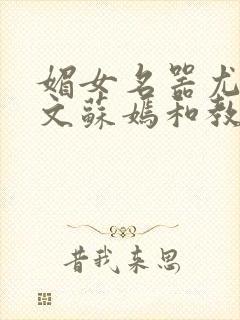 媚女名器尤
文蘇媽和教
昔我来思